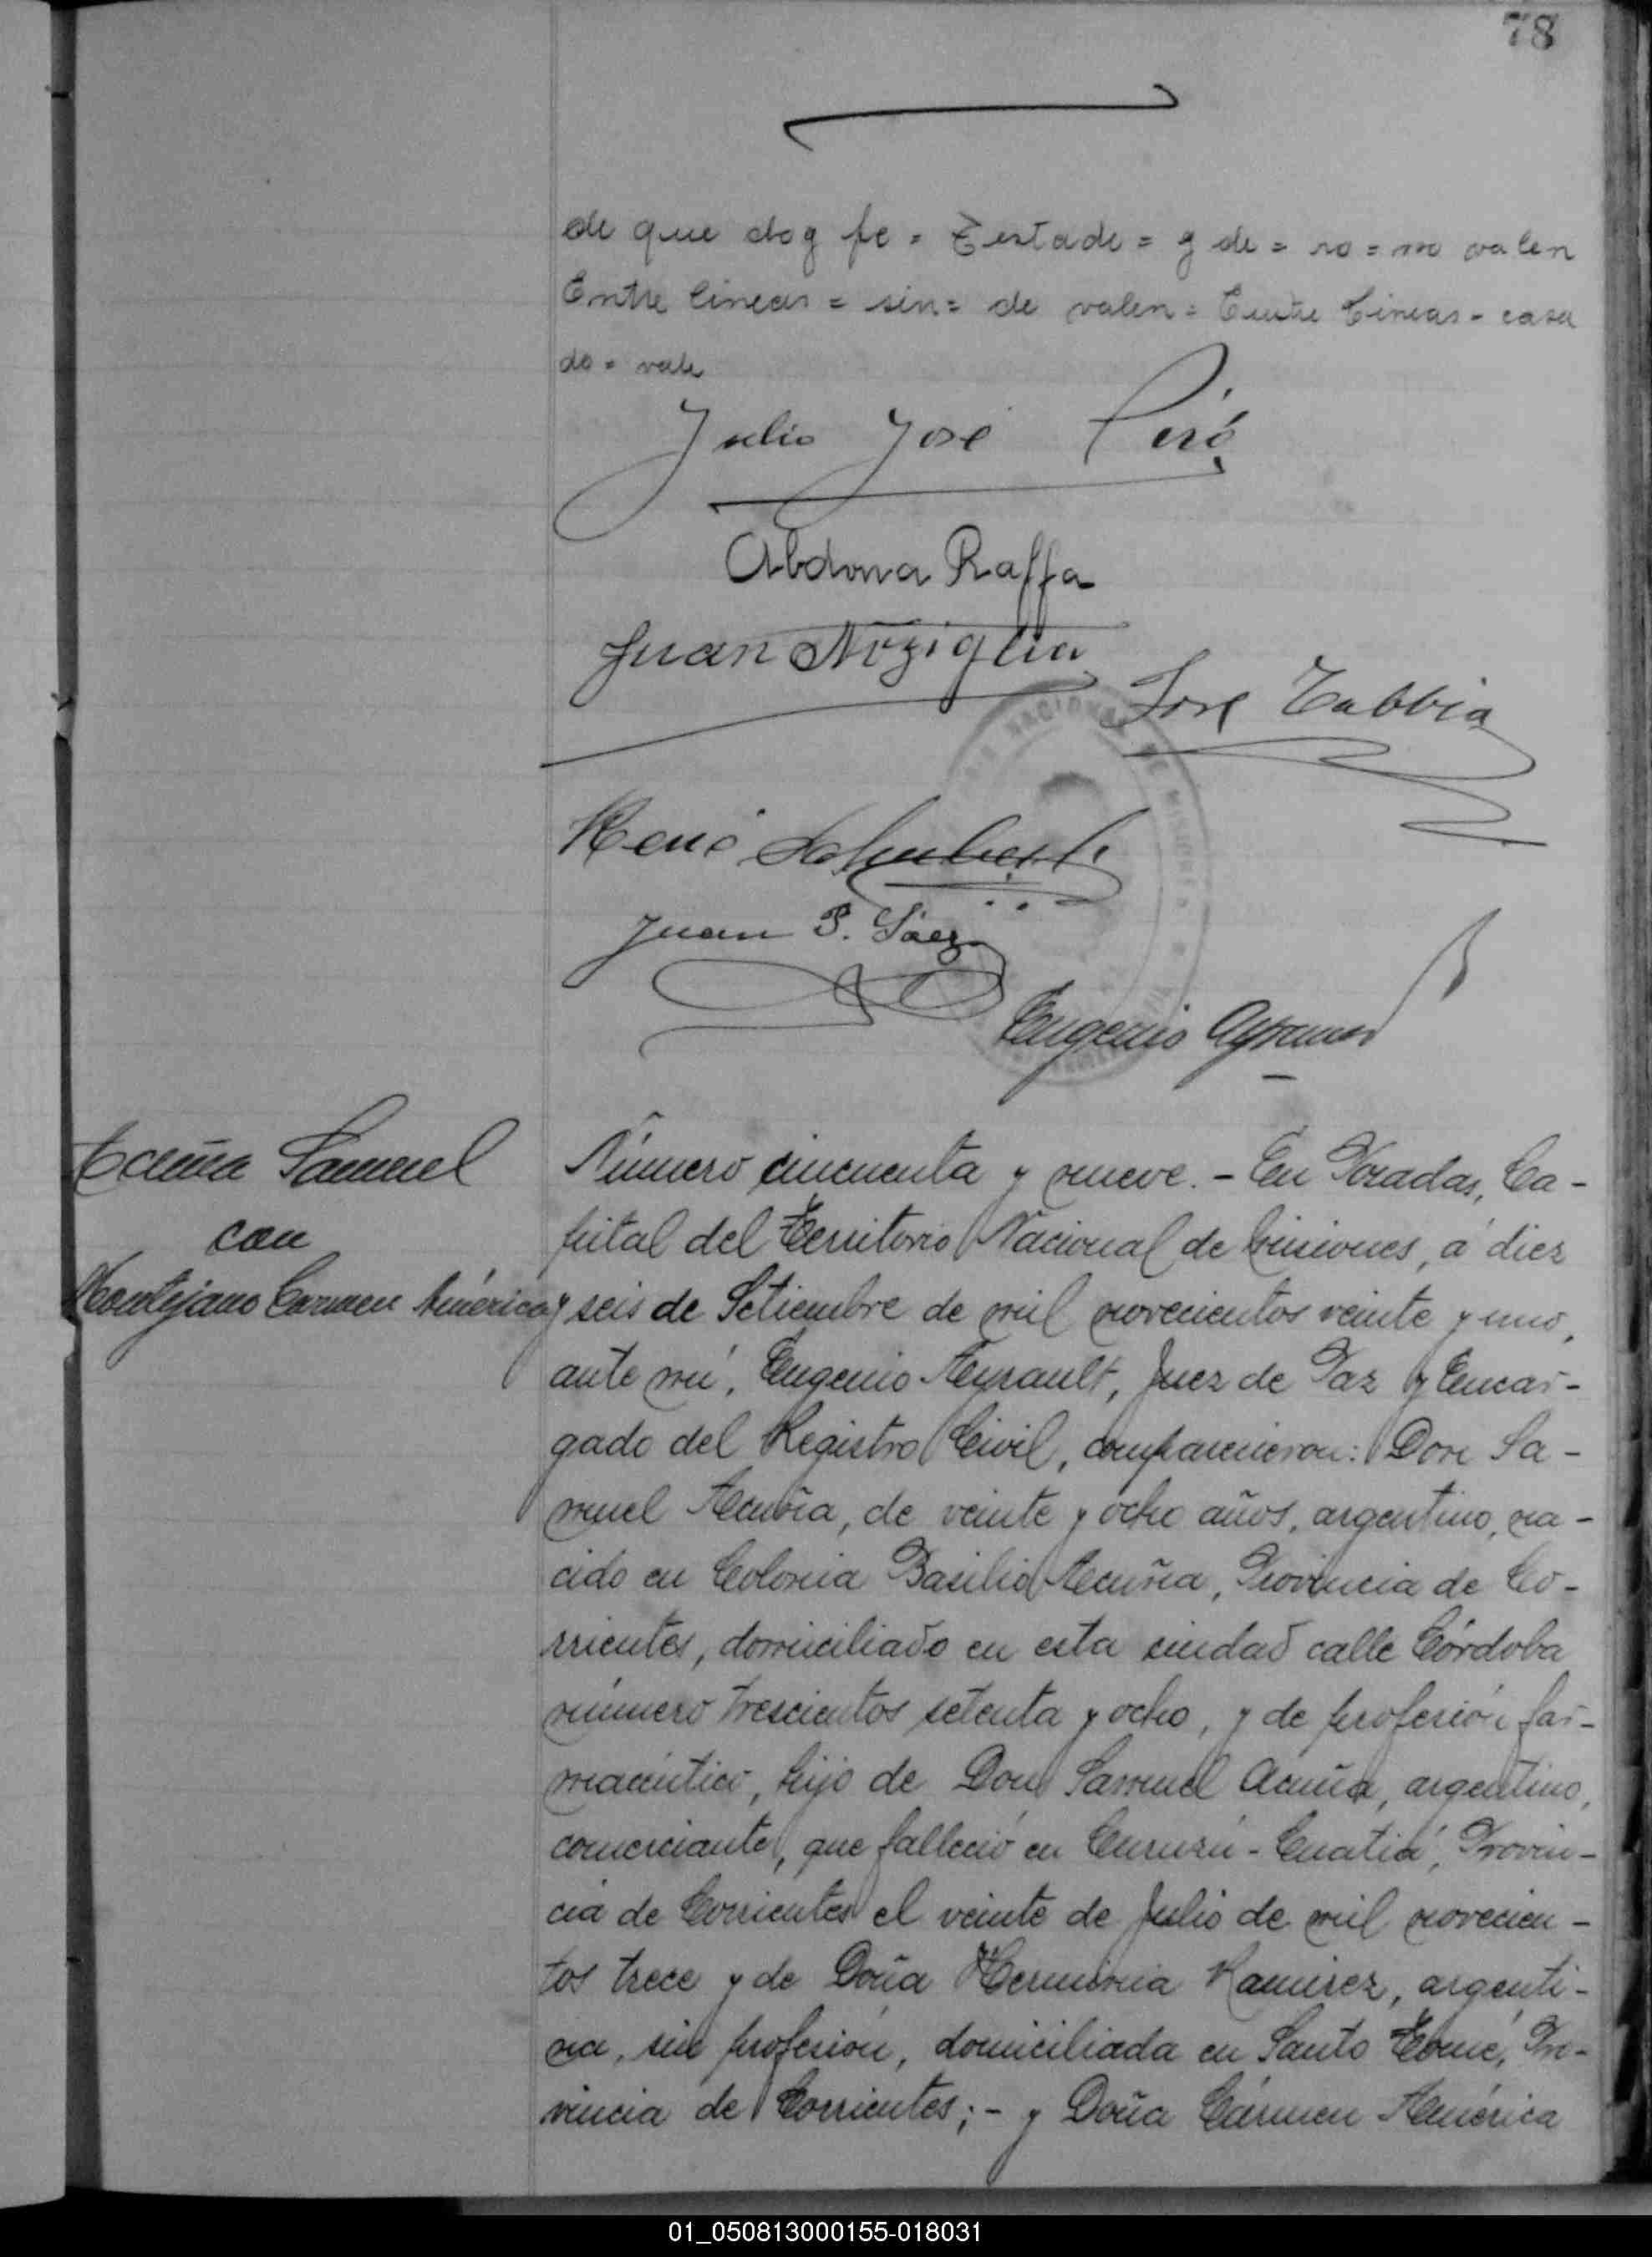 78
de que doy fe = Testado = y de = no = no valen
Entre lineas = sin = de valen = Entre lineas - casa
do = vale
Julio José Peró
Abdona Raffa
Juan Noziglia
José Tabbia
René Schubert
Juan P. Sáez
Eugenio
Acuña Samuel
con
Montejano Carmen América
Número cincuenta y nueve. - En Posadas, Ca-
pital del Territorio Nacional de Misiones, á diez
y seis de Setiembre de mil novecientos veinte y uno,
ante mí, Eugenio Ayrault, Juez de Paz y Encar-
gado del Registro Civil, comparecieron: Don Sa-
muel Acuña, de veinte y ocho años, argentino, na-
cido en Colonia Basilio Acuña, Provincia de Co-
rrientes, domiciliado en esta ciudad calle Córdoba
número trescientos setenta y ocho, y de profesión far-
macéutico, hijo de Don Samuel Acuña, argentino,
comerciante, que falleció en Curuzú-Cuatiá, Provin-
cia de Corrientes el veinte de Julio de mil novecien-
tos trece y de Doña Herminia Ramirez, argenti-
na, sin profesión, domiciliada en Santo Tomé, Pro-
vincia de Corrientes; - y Doña Cármen América
01_050813000155-018031